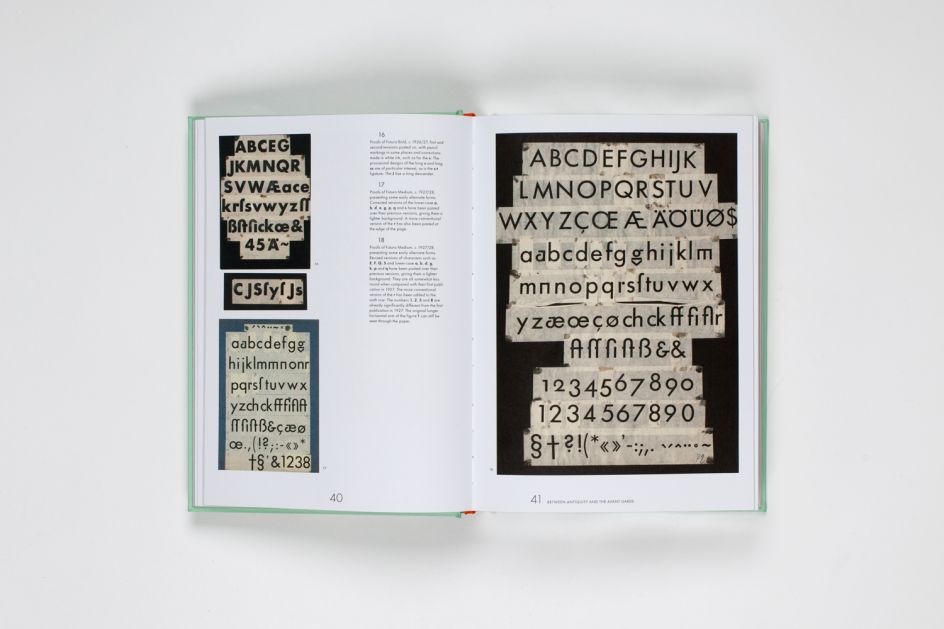 ABCEG
JKMNQR
SVWÆace
krſsvwyzſſ
ßſtſickœ&
45Ä~
16
CJSſyſJs
aabcdefgg
hijklmmnonr
pqrsſtuvwx
yzchckffſiſlſt
&çæø
œ.,(!?;:-«»*
†§'&1238
17
40
16
Proofs of Futura Bold, c. 1926/27, first and
second versions pasted on, with pencil
markings in some places and corrections
made in white ink, such as for the s. The
provisional designs of the long s and long
ss are of particular interest, as is the c+t
ligature. The J has a long descender.
17
Proofs of Futura Medium, c. 1927/28,
presenting some early alternate forms.
Corrected versions of the lower-case a,
b, d, e, g, p, q and s have been pasted
over their previous versions, giving them a
lighter background. A more conventional
version of the r has also been pasted at
the edge of the page.
18
Proofs of Futura Medium, c. 1927/28,
presenting some early alternate forms.
Revised versions of characters such as
E, F, Q, S and lower-case a, b, d, g,
h, p and q have been pasted over their
previous versions, giving them a lighter
background. They are all somewhat less
round when compared with their first publi-
cation in 1927. The more conventional
version of the r has been added to the
sixth row. The numbers 1, 2, 3 and 8 are
already significantly different from the first
publication in 1927. The original longer
horizontal arm of the figure 1 can still be
seen through the paper.
ABCDEFGHIJK
LMNOPQRSTUV
WXYZÇŒÆÄÖÜØ$
aabcdefgghijklm
mnnopqrsſtuvwx
yzæœçøchckffſiflr
ß&&
1234567890
1234567890
§†?!(*«»'-:;,.
18
41 BETWEEN ANTIQUITY AND THE AVANT GARDE